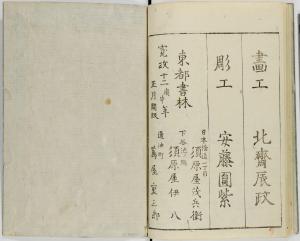 畫工　北齋辰政
彫工　安藤圓紫
東都書林
寛政十二庚申年
正月開版
日本橋通一丁目
須原屋茂兵衛
下谷池之端
須原屋伊八
通油町
蔦屋重三郎